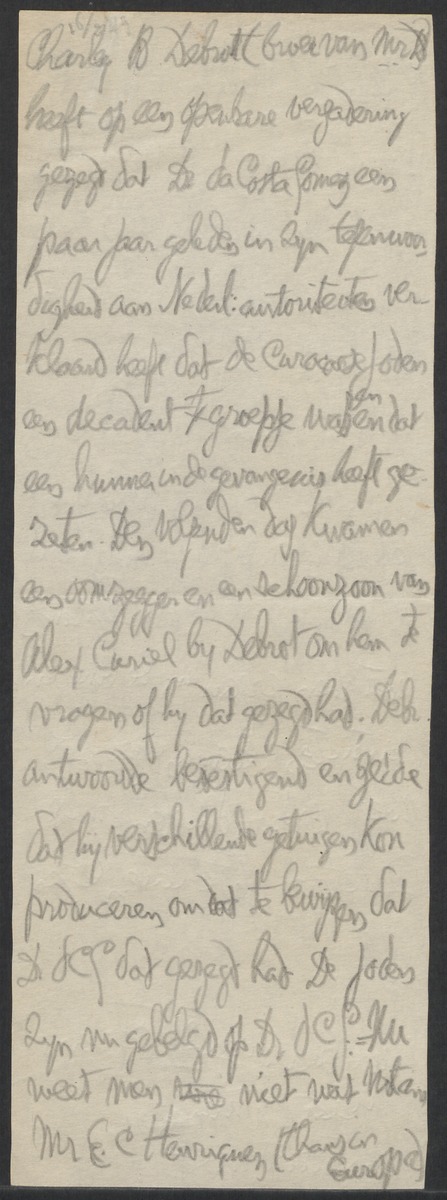 Charley B Debrott (broer van Mr D)
heeft op een openbare vergadering
gezegd dat Dr da Costa Gomez een
paar jaar geleden in zijn tegenwoor-
digheid aan Nederl: autoriteiten ver-
klaard heeft dat de Curacaose Joden
een decadent groepje waren en dat
een hunner in de gevangenis heeft ge-
zeten. Den volgenden dag kwamen
een oomzegger en een schoonzoon van
Alex Curiel by Debrot om hem te
vragen of hy dat gezegd had. Debr.
antwoordde bevestigend en zeide
dat hy verschillende getuigen kon
produceren om te bewijzen dat
Dr dCG dat gezegd had. De Joden
zyn nu gebelgd op Dr dCG. = Nu
weet men niet wat Notaris
Mr E. C Henriquez (thans in
Europa)